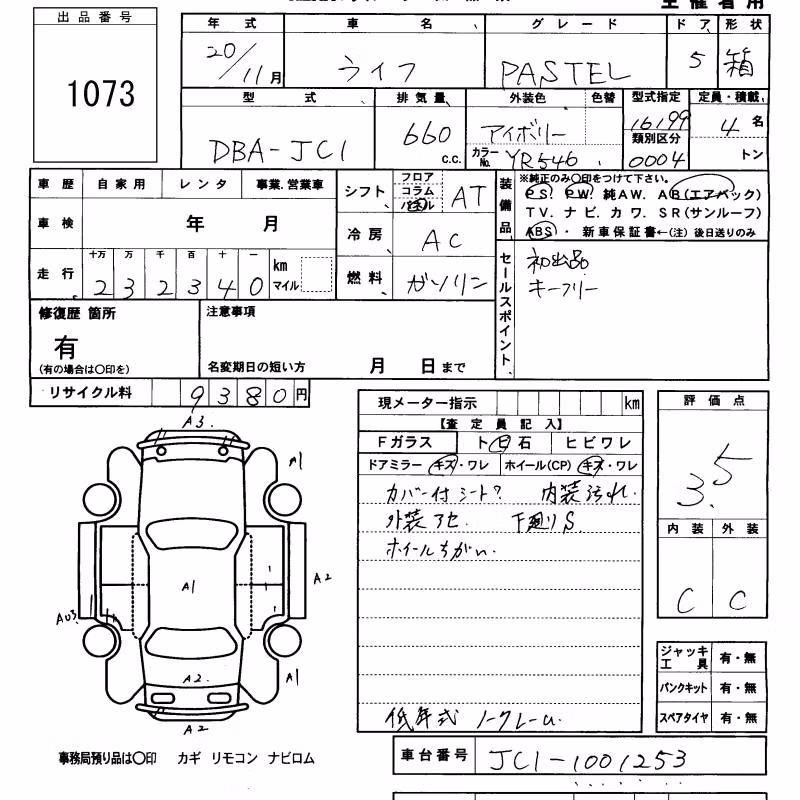 出品番号
1073
年式 車名 グレード ドア 形状
20/11月 ライフ PASTEL 5 箱
型式 排気量 外装色 色替 型式指定 定員・積載
DBA-JC1 660 c.c. アイボリー 16199 4名
カラーNo. YR546 類別区分 0004 トン
車歴 自家用 レンタ 事業.営業車
車検 年 月
走行 十万 万 千 百 十 一
2 3 2 3 4 0 km マイル
シフト フロア コラム パネル AT
冷房 AC
燃料 ガソリン
装備品
※純正のみ○印をつけて下さい。
PS. PW. 純AW. AB(エアバック)
TV. ナビ. カワ. SR(サンルーフ)
ABS・ 新車保証書←(注) 後日送りのみ
セールスポイント
初出品
キーフリー
修復歴 箇所
有
(有の場合は○印を)
注意事項
名変期日の短い方 月 日まで
リサイクル料 9380円
現メーター指示 km
【査定員記入】
Fガラス ト 石 ヒビワレ
ドアミラー キズ・ワレ ホイール(CP) キズ・ワレ
カバー付シート? 内装汚れ.
外装アセ. 下廻りS.
ホイールちがい.
低年式 ノークレーム.
評価点
3.5
内装 外装
C C
ジャッキ工具 有・無
パンクキット 有・無
スペアタイヤ 有・無
A3.
A1
A1
A2
AU3.
A2.
A1
A2
事務局預り品は○印 カギ リモコン ナビロム
車台番号 JC1-1001253